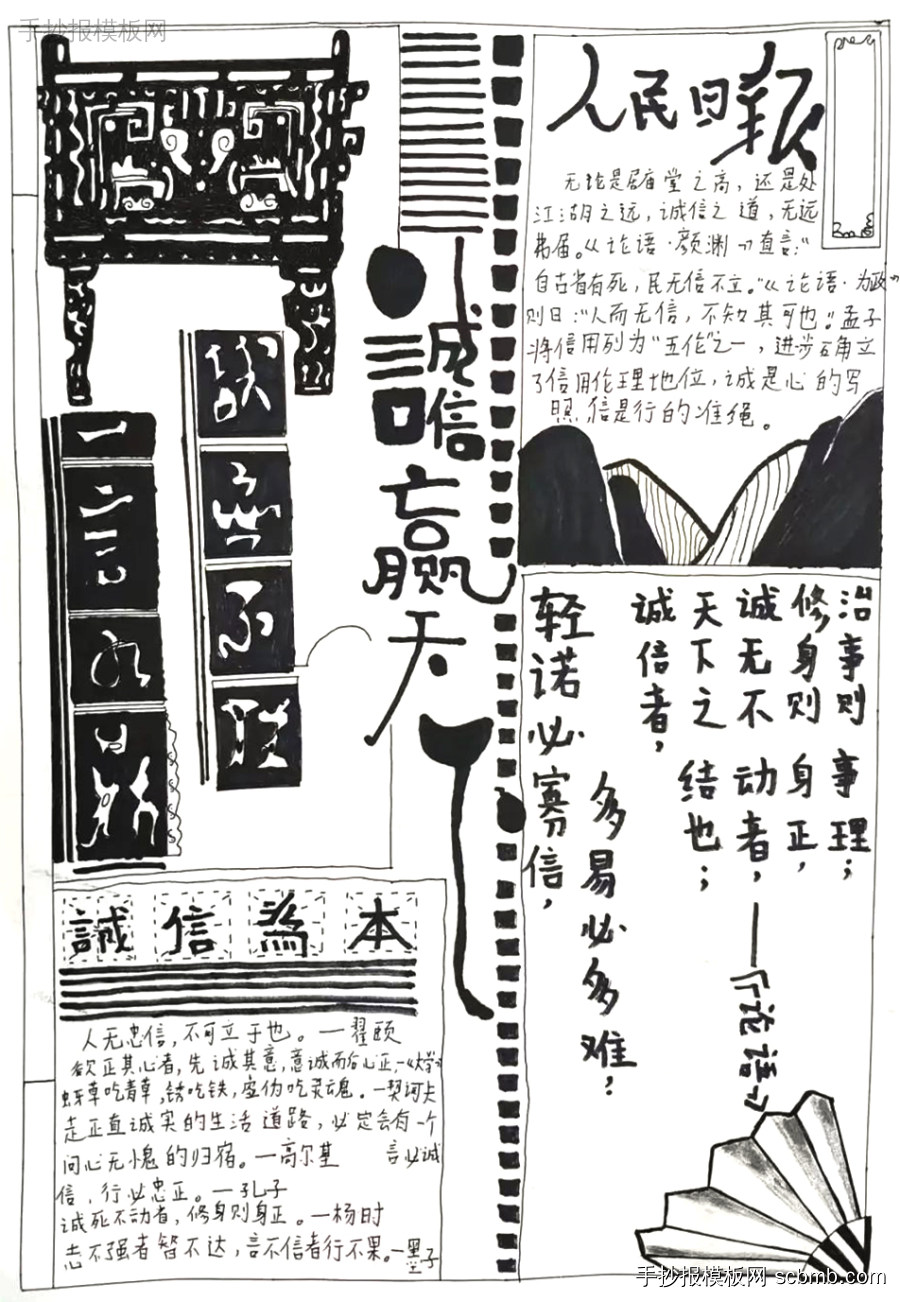 手抄报模板网
人民日报
无论是居庙堂之高，还是处
江湖之远，诚信之道，无远
弗届。《论语·颜渊》直言：“
自古皆有死，民无信不立。”《论语·为政》
则曰：“人而无信，不知其可也”。孟子
将信用列为“五伦”之一，进步确立
了信用伦理地位，诚是心的写
照，信是行的准绳。
誠信
赢
天
下
一言九鼎
誠信為本
人无忠信，不可立于也。—翟颐
欲正其心者，先诚其意，意诚而后心正—《大学》
蚜草吃青草，锈吃铁，虚伪吃灵魂。—契诃夫
走正直诚实的生活道路，必定会有一个
问心无愧的归宿。—高尔基 言必诚
信，行必忠正。—孔子
诚死不动者，修身则身正。—杨时
志不强者智不达，言不信者行不果。—墨子
治事则事理；
修身则身正，
诚无不动者，——《论语》
天下之结也；
诚信者，
多易必多难；
轻诺必寡信，
手抄报模板网 scbmb.com